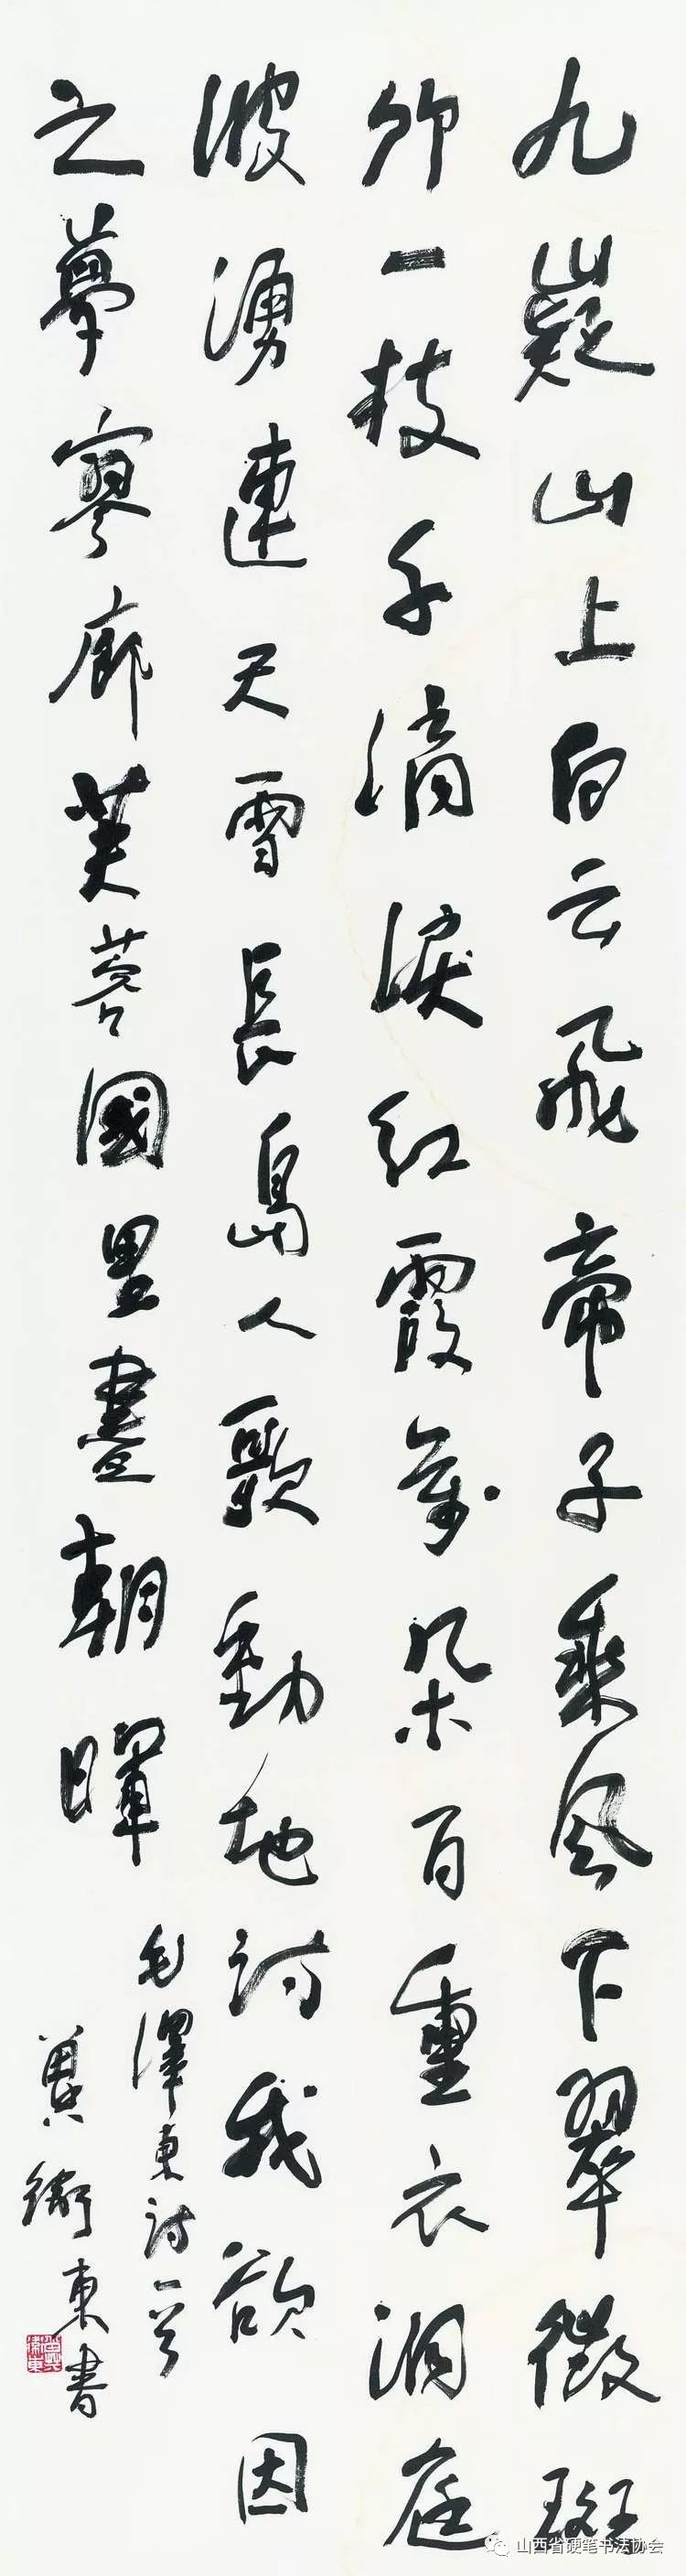 九嶷山上白云飛帝子乘风下翠微斑
竹一枝千滴淚紅霞萬朵百重衣洞庭
波湧連天雪長島人歌動地詩我欲因
之夢寥廓芙蓉國里盡朝暉
毛澤東詩一首
冀衛東書
山西省硬笔书法协会